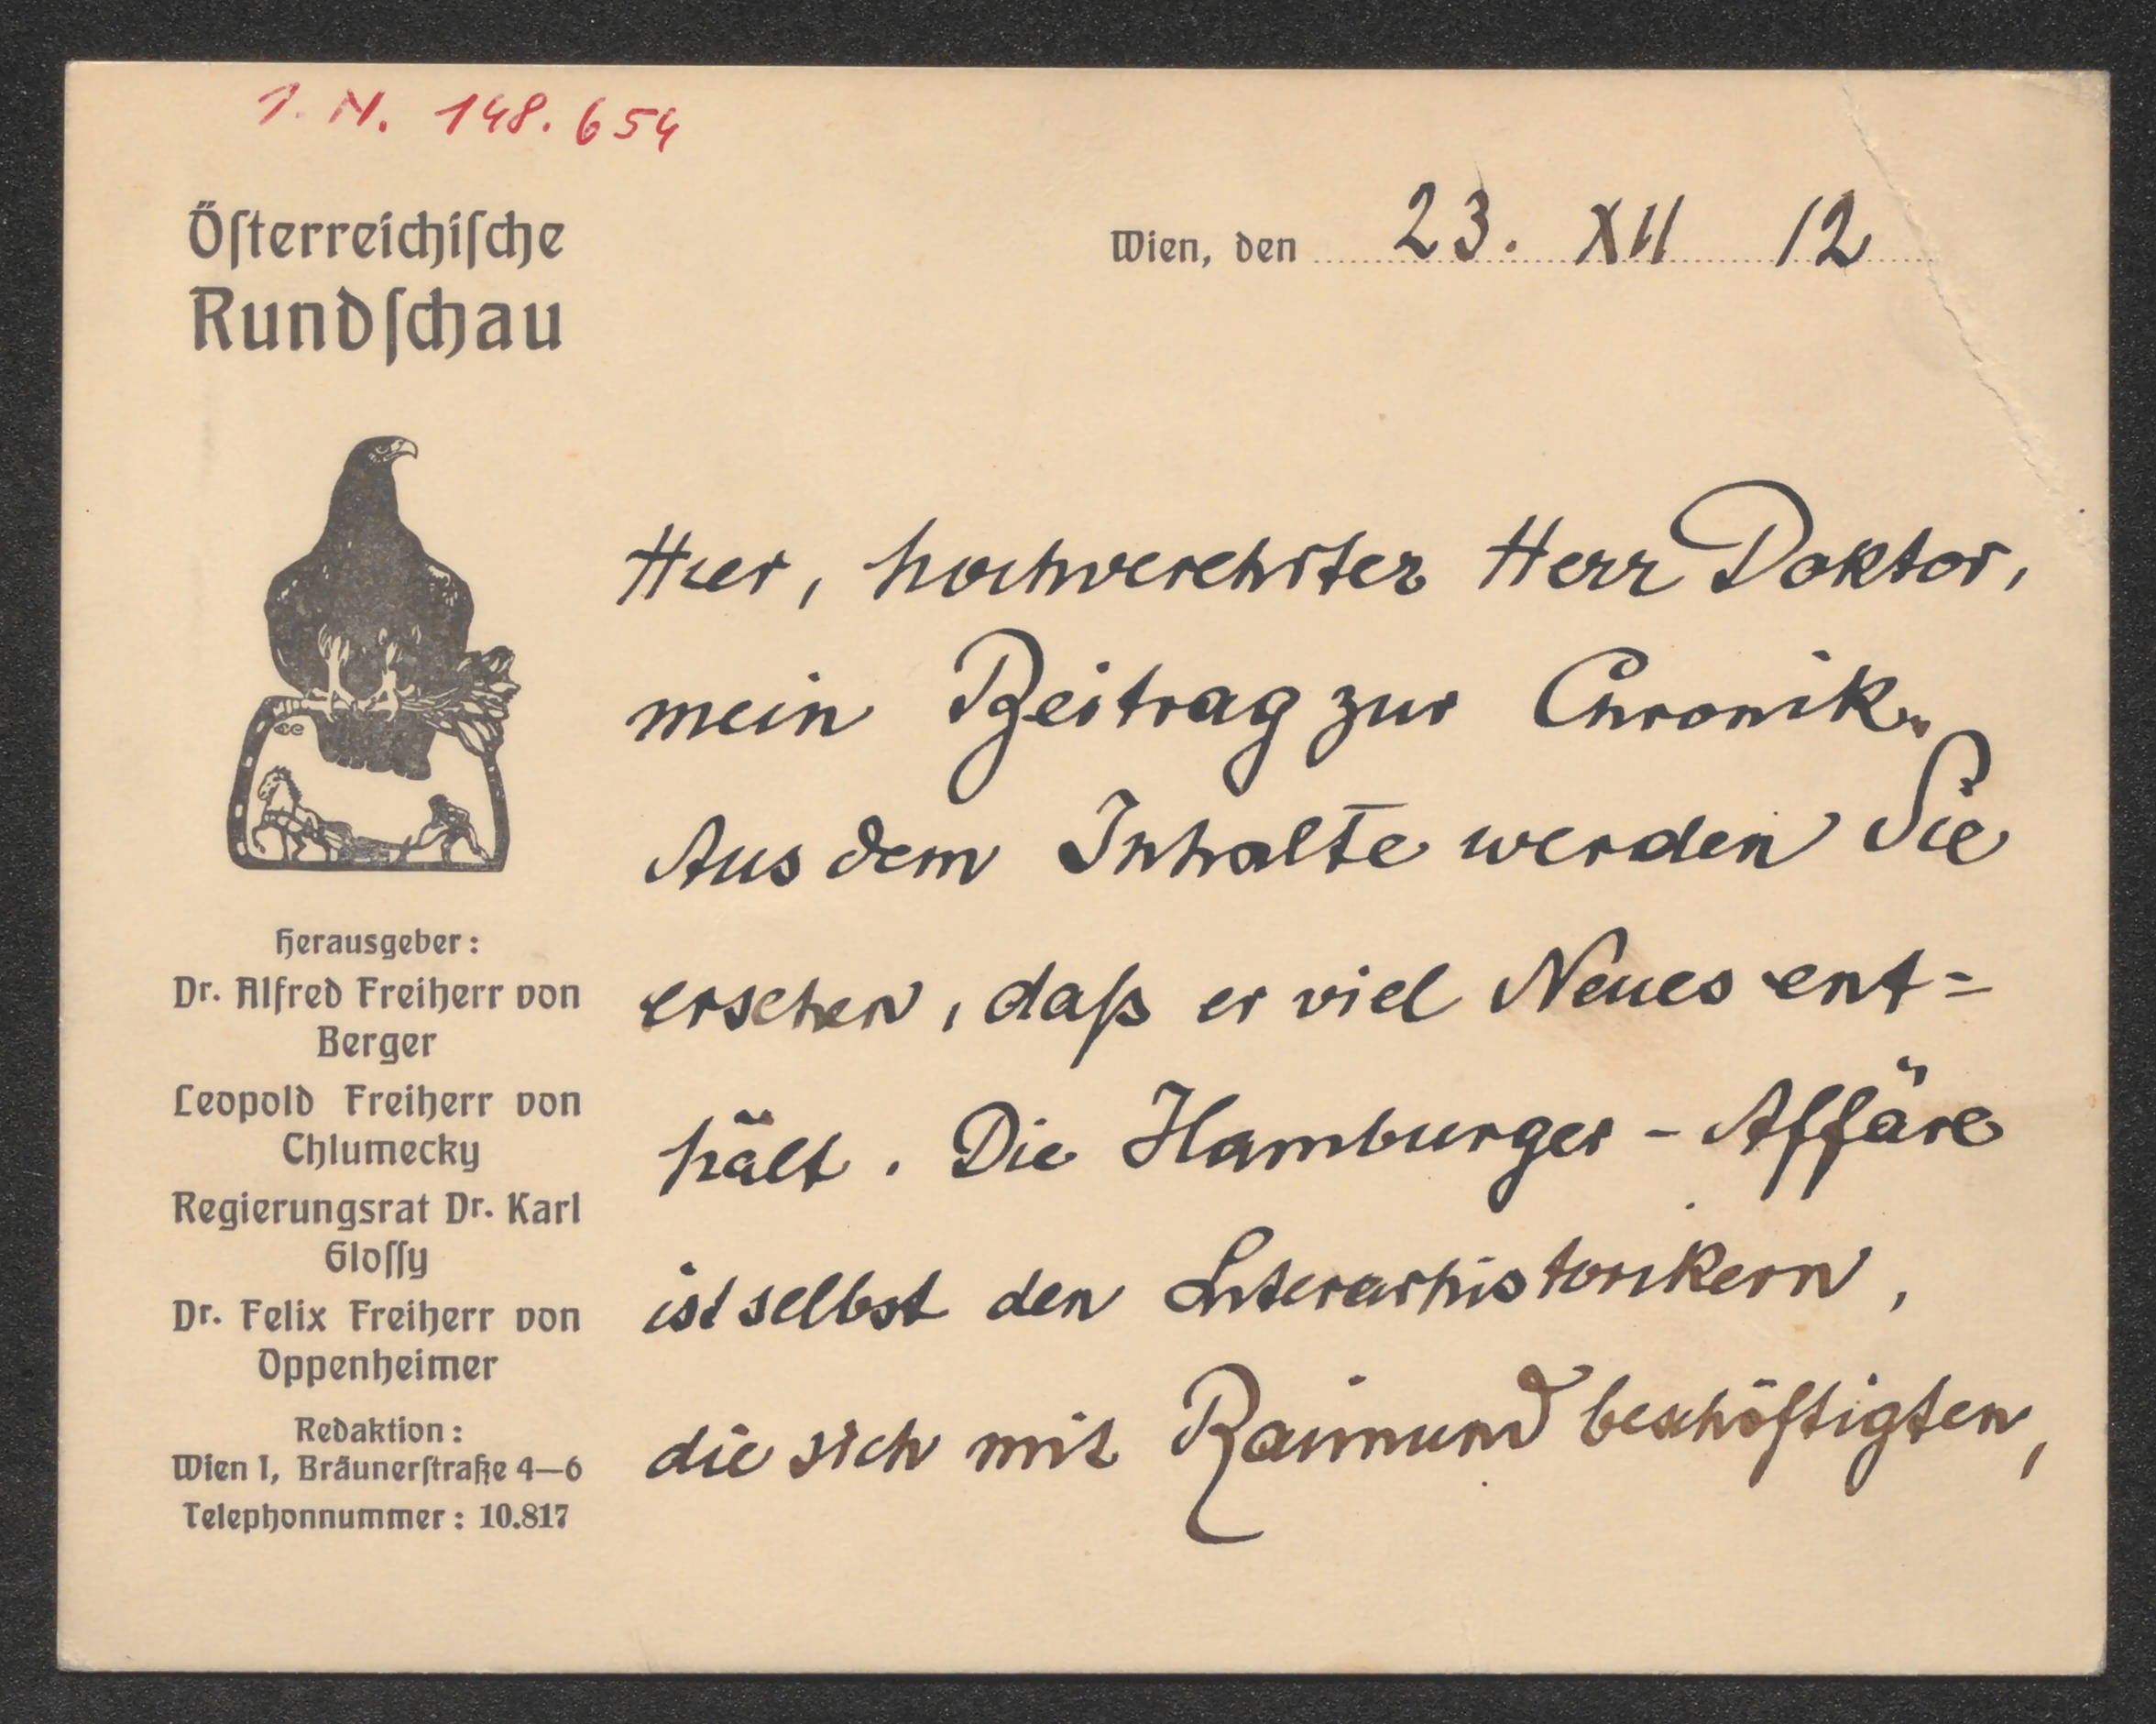 I. N. 148.654
Österreichische
Rundschau
Wien, den 23. XII 12
Herausgeber:
Dr. Alfred Freiherr von
Berger
Leopold Freiherr von
Chlumecky
Regierungsrat Dr. Karl
Glossy
Dr. Felix Freiherr von
Oppenheimer
Redaktion:
Wien I, Bräunerstraße 4—6
Telephonnummer: 10.817
Hier, hochverehrter Herr Doktor,
mein Beitrag zur Chronik.
Aus dem Inhalte werden Sie
ersehen, daß er viel Neues ent=
hält. Die Hamburger-Affäre
ist selbst den Literarhistorikern,
die sich mit Raimund beschäftigten,